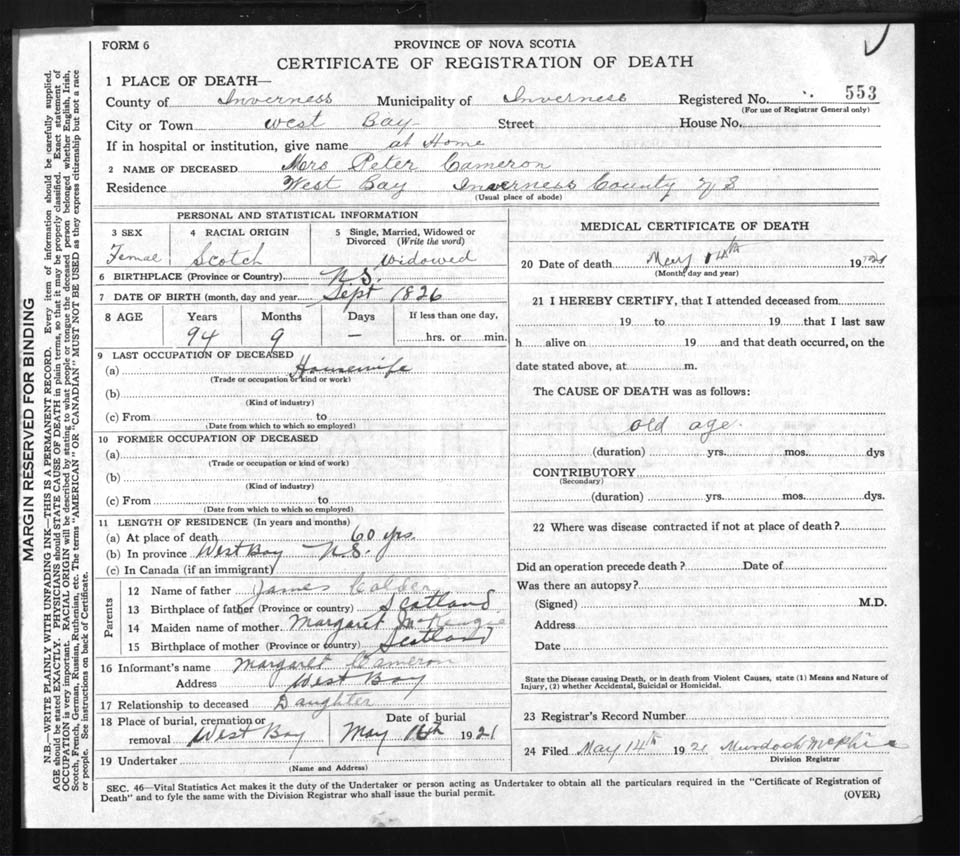 FORM 6
PROVINCE OF NOVA SCOTIA
CERTIFICATE OF REGISTRATION OF DEATH
1 PLACE OF DEATH—
County of Inverness Municipality of Inverness Registered No. 553
(For use of Registrar General only)
City or Town West Bay Street House No.
If in hospital or institution, give name at Home
2 NAME OF DECEASED Mrs Peter Cameron
Residence West Bay Inverness County N S
(Usual place of abode)
PERSONAL AND STATISTICAL INFORMATION
3 SEX 4 RACIAL ORIGIN 5 Single, Married, Widowed or Divorced (Write the word)
Femal Scotch Widowed
6 BIRTHPLACE (Province or Country) N.S.
7 DATE OF BIRTH (month, day and year) Sept 1826
8 AGE Years Months Days If less than one day,
94 9 — hrs. or min.
9 LAST OCCUPATION OF DECEASED
(a) Housewife
(Trade or occupation or kind or work)
(b)
(Kind of industry)
(c) From to
(Date from which to which so employed)
10 FORMER OCCUPATION OF DECEASED
(a)
(Trade or occupation or kind of work)
(b)
(Kind of industry)
(c) From to
(Date from which to which so employed)
11 LENGTH OF RESIDENCE (In years and months)
(a) At place of death 60 yrs.
(b) In province West Bay N.S.
(c) In Canada (if an immigrant)
Parents
12 Name of father James Calder
13 Birthplace of father (Province or country) Scotland
14 Maiden name of mother Margaret
15 Birthplace of mother (Province or country) Scotland
16 Informant's name Margaret Cameron
Address West Bay
17 Relationship to deceased Daughter
18 Place of burial, cremation or removal West Bay Date of burial May 16th 1921
19 Undertaker
(Name and Address)
MEDICAL CERTIFICATE OF DEATH
20 Date of death May 14th 1921
(Month, day and year)
21 I HEREBY CERTIFY, that I attended deceased from
19 to 19 that I last saw
h alive on 19 and that death occurred, on the
date stated above, at m.
The CAUSE OF DEATH was as follows:
old age.
(duration) yrs. mos. dys
CONTRIBUTORY
(Secondary)
(duration) yrs. mos. dys.
22 Where was disease contracted if not at place of death ?
Did an operation precede death ? Date of
Was there an autopsy?
(Signed) M.D.
Address
Date
State the Disease causing Death, or in death from Violent Causes, state (1) Means and Nature of
Injury, (2) whether Accidental, Suicidal or Homicidal.
23 Registrar's Record Number
24 Filed May 14th 1921 Murdoch McPhie
Division Registrar
SEC. 46—Vital Statistics Act makes it the duty of the Undertaker or person acting as Undertaker to obtain all the particulars required in the "Certificate of Registration of
Death" and to fyle the same with the Division Registrar who shall issue the burial permit.
(OVER)
MARGIN RESERVED FOR BINDING
N.B.—WRITE PLAINLY WITH UNFADING INK—THIS IS A PERMANENT RECORD. Every item of information should be carefully supplied.
AGE should be stated EXACTLY. PHYSICIANS should STATE CAUSE OF DEATH in plain terms, so that it may be properly classified. Exact statement of
OCCUPATION is very important. RACIAL ORIGIN will be described by stating to what people or tongue the deceased person belonged whether English, Irish,
Scotch, French, German, Russian, Ruthenian, etc. The terms "AMERICAN" OR "CANADIAN" MUST NOT BE USED as they express citizenship but not a race
or people. See instructions on back of Certificate.